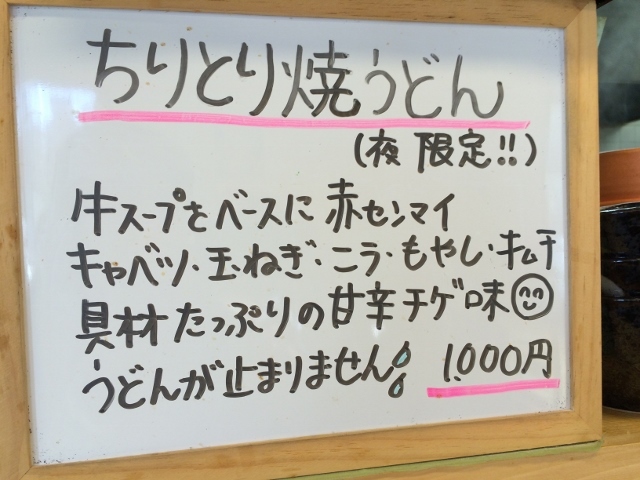 ちりとり焼うどん
(夜 限定!!)
牛スープをベースに赤センマイ
キャベツ・玉ねぎ・こう・もやし・キムチ
具材たっぷりの甘辛チゲ味
うどんが止まりません 1,000円